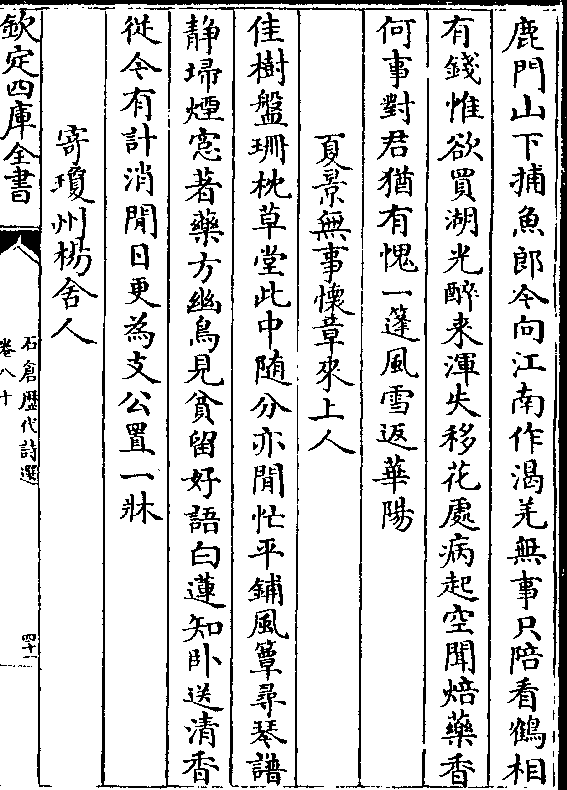 鹿門山下捕魚郎今向江南作渴羌無事只陪看鶴相
有錢惟欲買湖光醉来渾失移花處病起空聞焙藥香
何事對君猶有愧一蓬風雪返華陽
夏景無事懷章來上人
佳樹盤珊枕草堂此中随分亦閒忙平鋪風簟尋琴譜
静埽煙窓著藥方幽鳥見貧留好語白蓮知卧送清香
從今有計消閒日更為支公置一牀
寄瓊州楊舍人
欽定四庫全書
石倉歴代詩選
卷八十
四十一